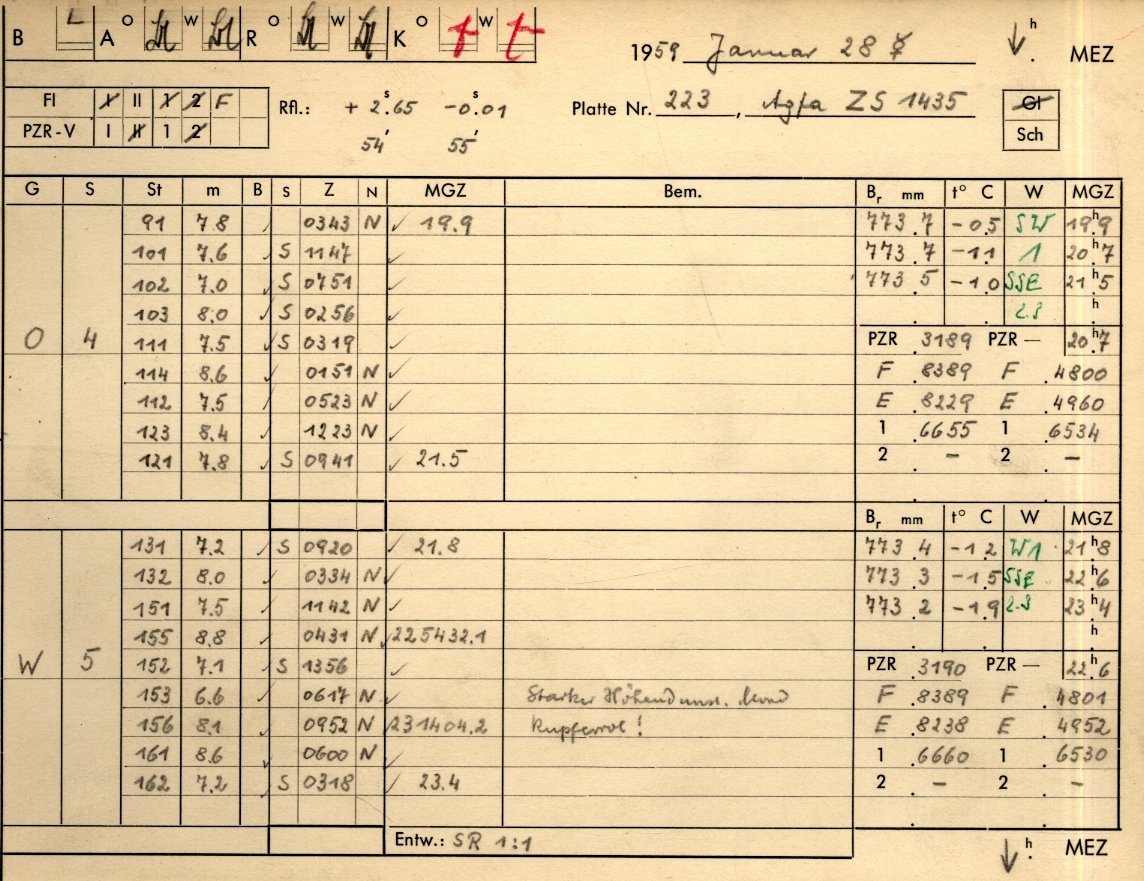 B L A O W R O W K O t W t
1959 Januar 28 ☿ h . MEZ
FI I II 1 2 F
PZR-V I II 1 2
Rfl.: + 2.65 s -0.01 s
54' 55'
Platte Nr. 223, Agfa ZS 1435
GI
Sch
G S St m B S Z N MGZ Bem. Br mm t° C W MGZ
91 7.8 ✓ 0343 N ✓ 19.9 773.7 -0.5 SW 19h.9
101 7.6 ✓ S 1147 ✓ 773.7 -1.1 1 20h.7
102 7.0 ✓ S 0751 ✓ 773.5 -1.0 SSE 21h.5
103 8.0 ✓ S 0256 ✓ 2.3 h
O 4 111 7.5 ✓ S 0319 ✓ PZR .3189 PZR — 20h.7
114 8.6 ✓ 0151 N ✓ F .8389 F .4800
112 7.5 ✓ 0523 N ✓ E .8229 E .4960
123 8.4 ✓ 1223 N ✓ 1 .6655 1 .6534
121 7.8 ✓ S 0941 ✓ 21.5 2 . – 2 . –
Br mm t° C W MGZ
131 7.2 ✓ S 0920 ✓ 21.8 773.4 -1.2 W1 21h.8
132 8.0 ✓ 0334 N ✓ 773.3 -1.5 SSE 22h.6
151 7.5 ✓ 1142 N ✓ 773.2 -1.9 2.3 23h.4
155 8.8 ✓ 0431 N ✓ 225432.1 h
W 5 152 7.1 ✓ S 1356 ✓ PZR .3190 PZR — 22h.6
153 6.6 ✓ 0617 N ✓ Starker Höhendunst. Mond F .8389 F .4801
156 8.1 ✓ 0952 N ✓ 231404.2 kupferrot! E .8238 E .4952
161 8.6 ✓ 0600 N ✓ 1 .6660 1 .6530
162 7.2 ✓ S 0318 ✓ 23.4 2 . – 2 . –
Entw.: SR 1:1
h . MEZ